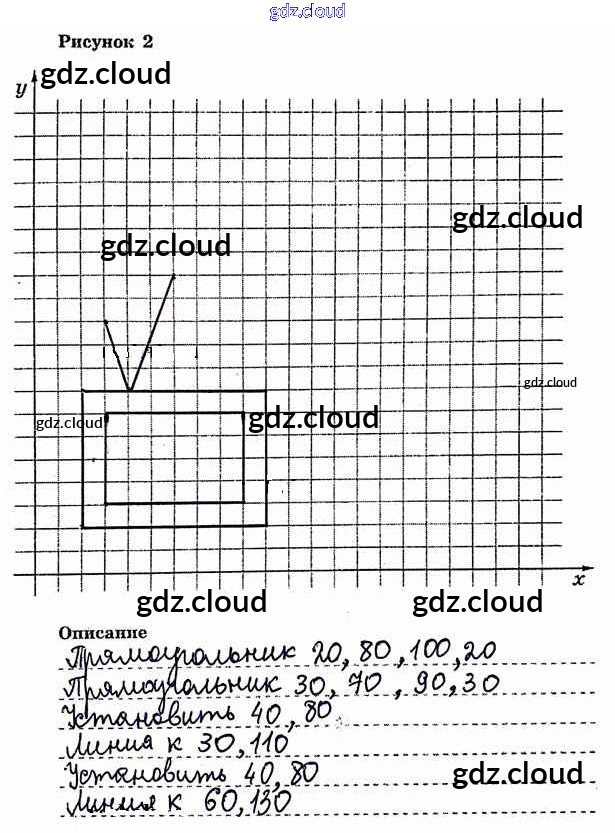 gdz.cloud
Рисунок 2
gdz.cloud
y
gdz.cloud
gdz.cloud
gdz.cloud
gdz.cloud
gdz.cloud
x
gdz.cloud
gdz.cloud
Описание
Прямоугольник 20, 80, 100, 20
Прямоугольник 30, 70, 90, 30
Установить 40, 80
Линия к 30, 110
Установить 40, 80
gdz.cloud
Линия к 60, 130